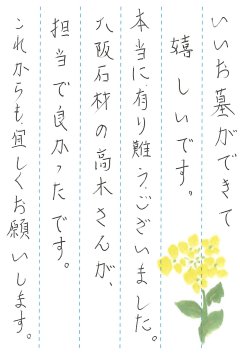 いいお墓ができて
嬉しいです。
本当に有り難うございました。
大阪石材の高木さんが、
担当で良かったです。
これからも宜しくお願いします。